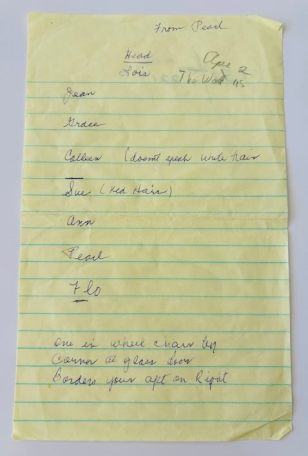 From Pearl
Head
Lois
Apr 2
The Way
Jean
Grace
Colleen (doesnt speak white hair
Sue (Red Hair)
Ann
Pearl
Flo
one in wheel chair by
Corner at glass door
Borders your apt on Right